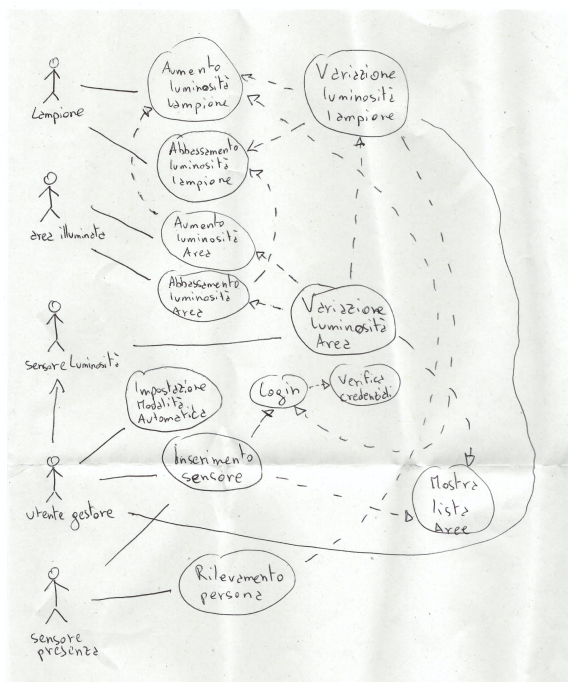 Aumento
luminosità
lampione
Variazione
luminosità
lampione
Lampione
Abbassamento
luminosità
lampione
area illuminata
Aumento
luminosità
Area
Abbassamento
luminosità
Area
Variazione
Luminosità
Area
sensore Luminosità
Impostazione
Modalità
Automatica
Login
Verifica
credenziali
Inserimento
sensore
utente gestore
Mostra
lista
Aree
Rilevamento
persona
sensore
presenza